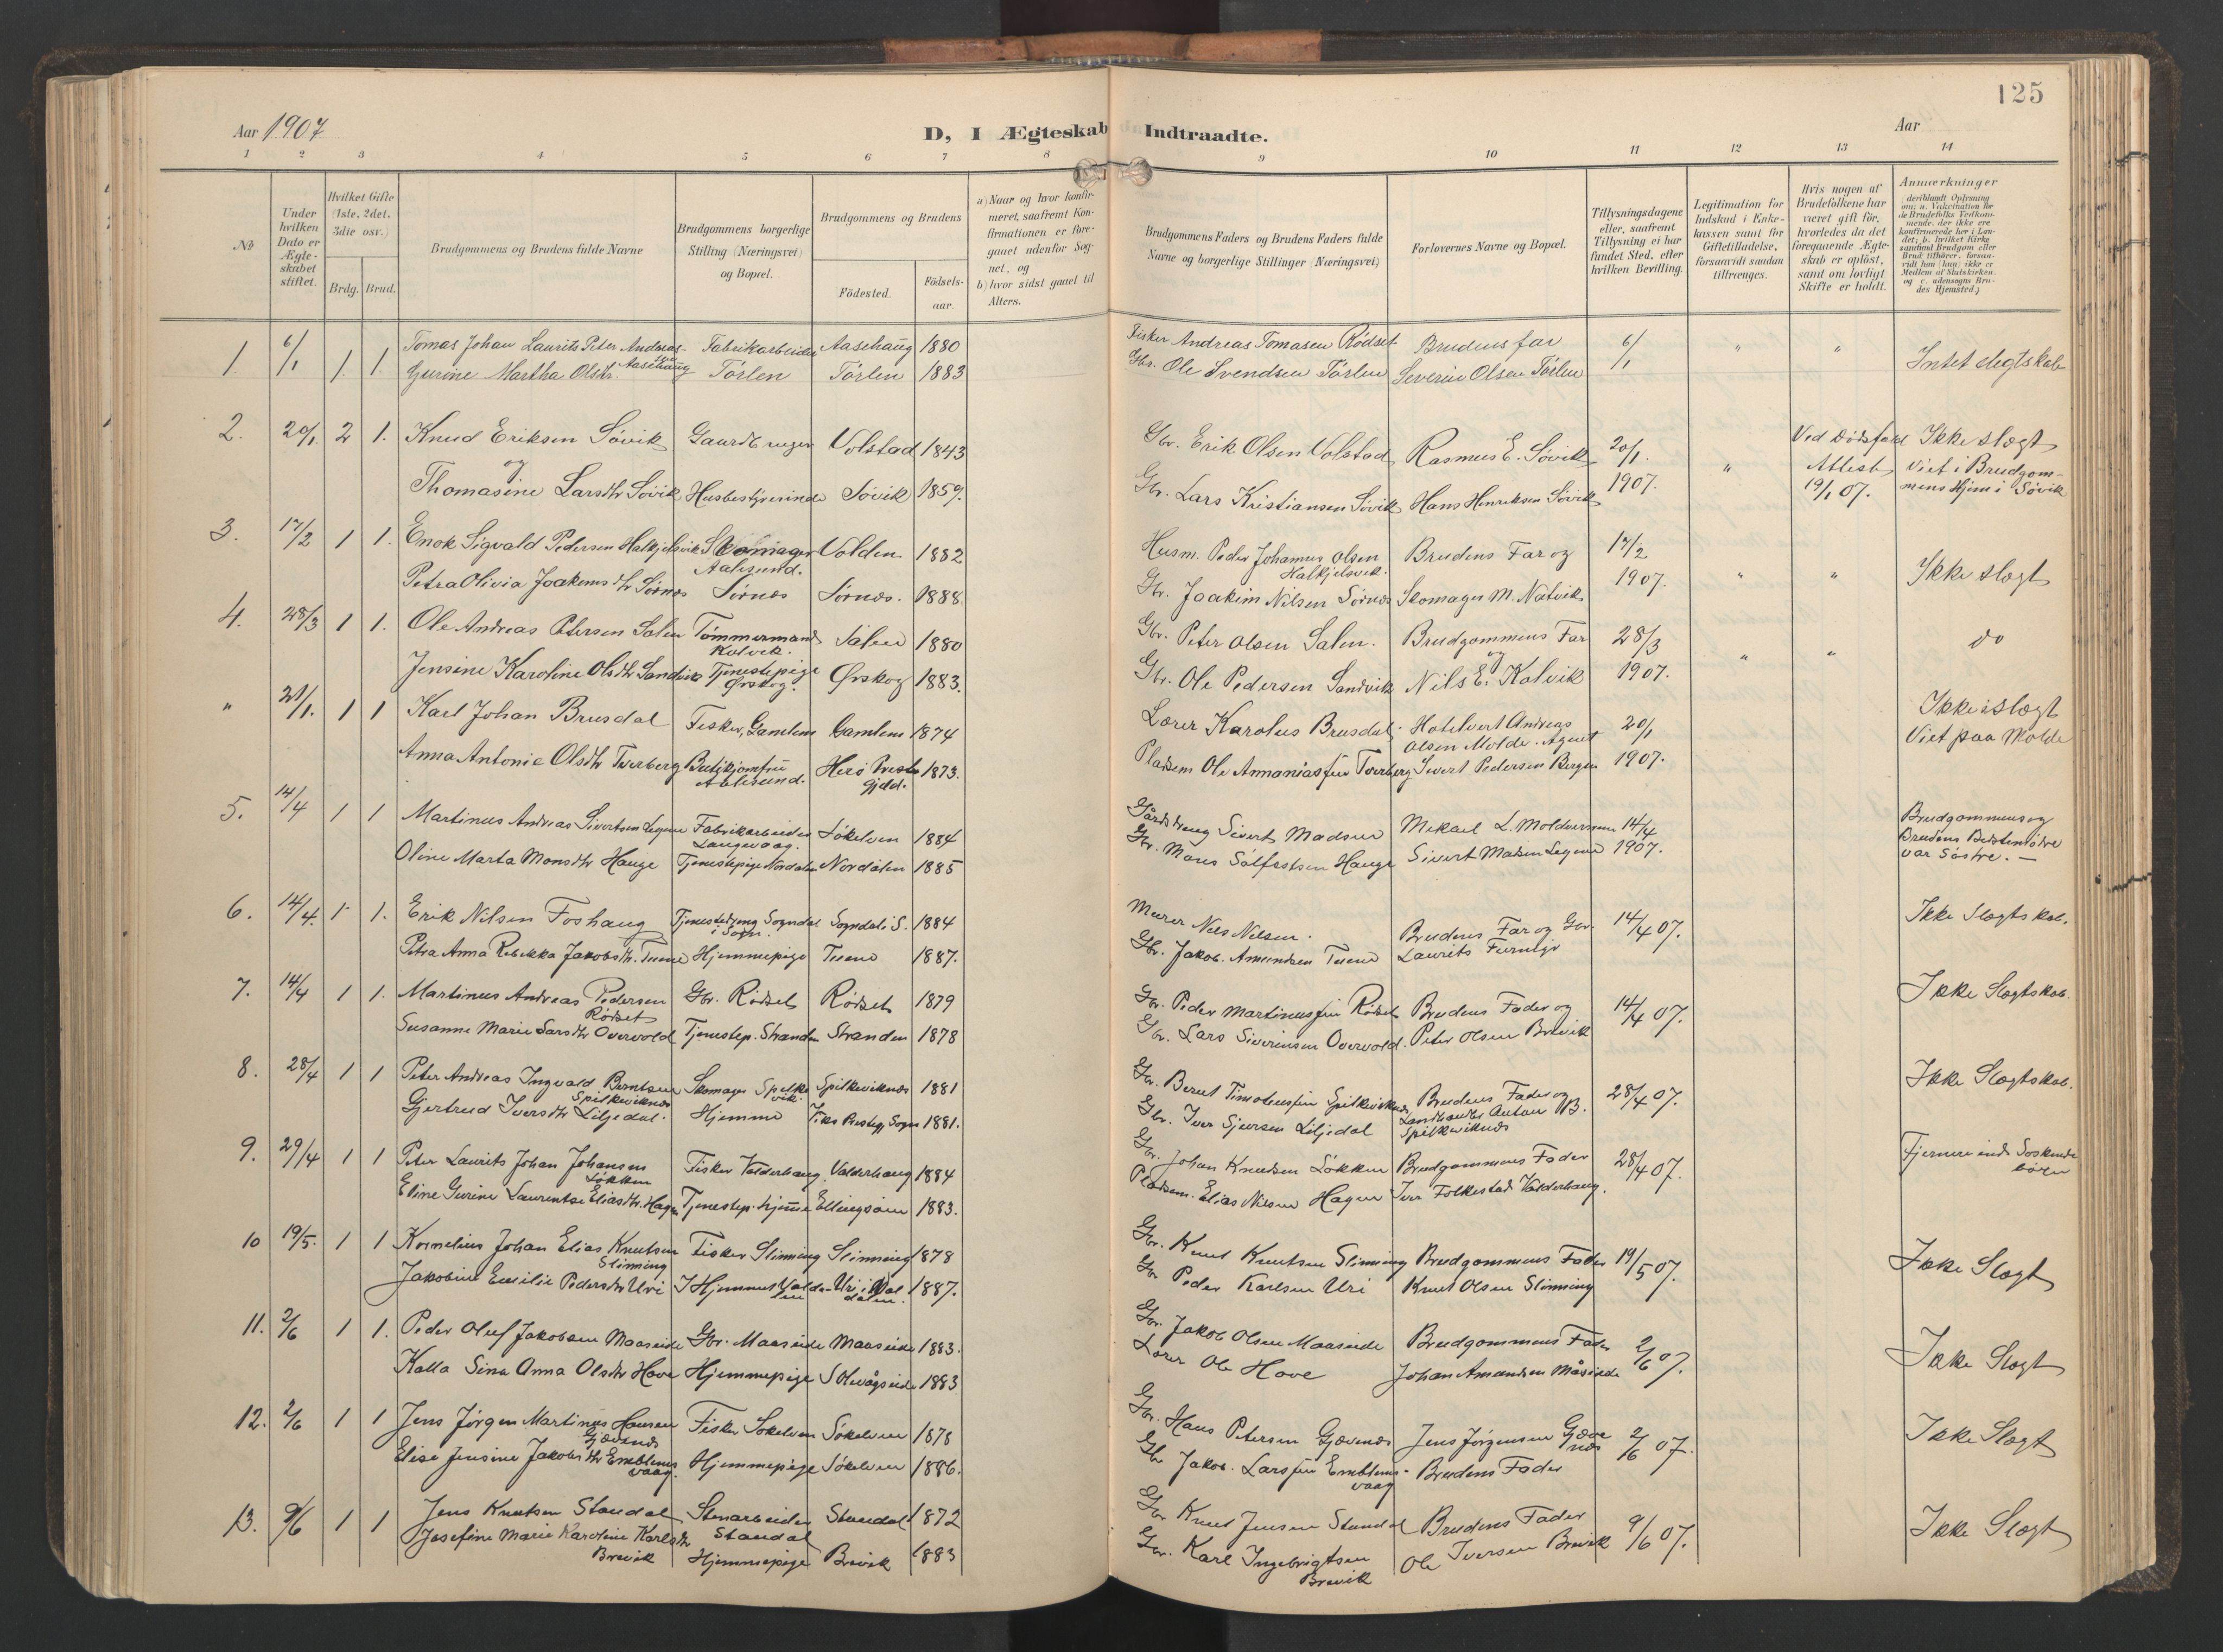 125
Aar 1907
D, I Ægteskab Indtraadte.
Aar
1 2 3 4 5 6 7 8 9 10 11 12 13 14
No
Under hvilken Dato er Ægteskabet stiftet.
Hvilket Gifte (1ste, 2det, 3die osv.)
Brdg. Brud.
Brudgommens og Brudens fulde Navne
Brudgommens borgerlige Stilling (Næringsvei) og Bopæl.
Brudgommens og Brudens
Födested.
Födsels-aar.
a) Naar og hvor konfirmeret, saafremt Konfirmationen er foregaaet udenfor Sognet, og
b) hvor sidst gaaet til Alters.
Brudgommens Faders og Brudens Faders fulde Navne og borgerlige Stillinger (Næringsvei)
Forlovernes Navne og Bopæl.
Tillysningsdagene eller, saafremt Tillysning ei har fundet Sted, efter hvilken Bevilling.
Legitimation for Indskud i Enkekassen samt for Giftetilladelse, forsaavidt saadan tiltrænges.
Hvis nogen af Brudefolkene har været gift för, hvorledes da det foregaaende Ægteskab er oplöst, samt om lovligt Skifte er holdt.
Anmærkninger
1 6/1 1 1 Tomas Johan Laurits Peter Andreas- Fabrikarbeider Aasehaug 1880 Fisker Andreas Tomasen Rødset Brudens far 6/1 " " Intet slegtskab
Aasehaug
Gurine Martha Olsdtr. Tørlen Tørlen 1883 Gbr. Ole Svendsen Tørlen Severin Olsen Tørlen
2. 20/1 2 1. Knud Eriksen Søvik Volstad 1843 Gbr. Erik Olsen Volstad Rasmus E. Søvik 20/1. " Ved Dødsfald Ikke slægt
og
Thomasine Larsdtr Søvik Husbestyrerinde Søvik 1859. Gbr. Lars Kristiansen Søvik Hans Henriksen Søvik 1907. Attest 19/1 07. Viet i Brudgommens Hjem i Søvik
3. 17/2 1 1. Enok Sigvald Pedersen Halkjelsvik Skomager Aalesund. Volden 1882 Husm. Peder Johannes Olsen Halkjelsvik. Brudens Far og 17/2 " " Ikke slægt
Petra Olivia Joakimsdtr Sørnes Sørnes Sørnes. 1888 Gbr. Joakim Nilsen Sørnes Skomager M. Natvik 1907.
4. 28/3 1 1. Ole Andreas Petersen Salen Tømmermand Kolvik. Salen 1880 Gbr. Peter Olsen Salen. Brudgommens Far 28/3 " " do
og
Jensine Karoline Olsdtr Sandvik Tjenestepige Ørskog. Ørskog 1883. Gbr. Ole Pedersen Sandvik Nils E. Kolvik 1907.
" 21/1. 1 1 Karl Johan Brusdal Fisker, Gamlem Gamlem 1874 Lærer Karolus Brusdal Hotelvert Andreas Olsen Molde. Agent 20/1 Ikke i Slægt
Anna Antonie Olsdtr Tverberg Butikjomfru Aalesund. Herø Prestegjeld. 1873. Pladsem Ole Ananiassen Tverberg Sivert Pedersen Bergen 1907. Viet paa Molde
5. 14/4 1 1 Martinus Andreas Sivertsen Fabrikarbeider Langevaag. Søkelven 1884 Gårdbrug Sivert Madsen Mikael L. 14/4 Brudgommens og
Oline Marta Monsdtr Hauge Tjenestepige Nordalen Nordalen 1885 Gbr. Mons Hauge Sivert Madsen 1907. Brudens Bedstemødre var Søstre.
6. 14/4. 1 1. Erik Nilsen Foshaug Tjenestedreng Sogndal i Sogn. Sogndal i S. 1884 Murer Nils Nilsen. Brudens Far og Gbr. 14/4 07. Ikke Slægtskab.
Petra Anna Rebekka Jakobsdtr. Tuene Hjemmepige Tuene 1887. Gbr. Jakob Amundsen Tuene Laurits
7. 14/4 1 1. Martinus Andreas Pedersen Rødset Gbr. Rødset Rødset 1879 Gbr. Peder Martinussen Rødset Brudens Fader og 14/4 07. Ikke Slægtskab.
Susanne Marie Larsdtr Overvold Tjenestep. Stranden Stranden 1878 Gbr. Lars Siverinsen Overvold. Peter Olsen Brevik
8. 28/4 1 1 Peter Andreas Ingvald Berntsen Spilkeviknes Skomager Spelkevik Spilkeviknes 1881 Gbr. Bernt Timoteussen Spilkeviknes Brudens Fader og 28/4 07. Ikke Slægtskab.
Gjertrud Iversdtr Liljedal. Hjemme 1881. Gbr. Iver Sjursen Liljedal Landhandler Anton B. Spilkeviknes
9. 29/4 1 1 Peter Laurits Johan Johansen Løkken Fisker Valderhaug Valderhaug 1884 Gbr. Johan Knudsen Løkken Brudgommens Fader 28/4 07. Fjernere end Søskendebørn
Eline Gurine Laurentse Eliasdtr. Hagen Tjenestep. hjemme Ellingsøen 1883. Pladsem. Elias Nilsen Hagen Iver Folkestad Valderhaug.
10 19/5. 1 1 Kornelius Johan Elias Knutsen Slinning Fisker Slinning Slinning 1878 Gbr. Knut Knutsen Slinning Brudgommens Fader 19/5 07. Ikke Slægt
Jakobine Emilie Pedersdtr Uri I Hjemmet Valdalen Uri i Valdalen. 1887. Gbr Peder Karlsen Uri Knut Olsen Slinning
11. 2/6 1 1. Peder Oluf Jakobsen Maaseide Gbr. Maaseide Maaseide 1883. Gbr. Jakob Olsen Maaseide Brudgommens Fader 2/6 07. Ikke Slægt
Kalla Sina Anna Olsdtr Hove Hjemmepige Solevågseide 1883 Lærer Ole Hove Johan Amundsen Måseide
12. 2/6 1 1 Jens Jørgen Martinus Hansen Gjævenes Fisker Søkelven Søkelven 1878 Gbr. Hans Petersen Gjævenes Jens Jørgensen Gjævenes 2/6 07. Ikke Slægt
Elise Jensine Jakobsdtr Emblemsvaag. Hjemmepige Søkelven 1886. Gbr Jakob Larssen Emblemsvaag Brudens Fader
13. 9/6 1 1 Jens Knutsen Standal Stenarbeider Standal Standal 1872 Gbr Knut Jensen Standal Brudens Fader 9/6 07. Ikke Slægt
Josefine Marie Karoline Karlsdtr Brevik Hjemmepige Brevik 1883 Gbr. Karl Ingebrigtsen Brevik Ole Iversen Brevik